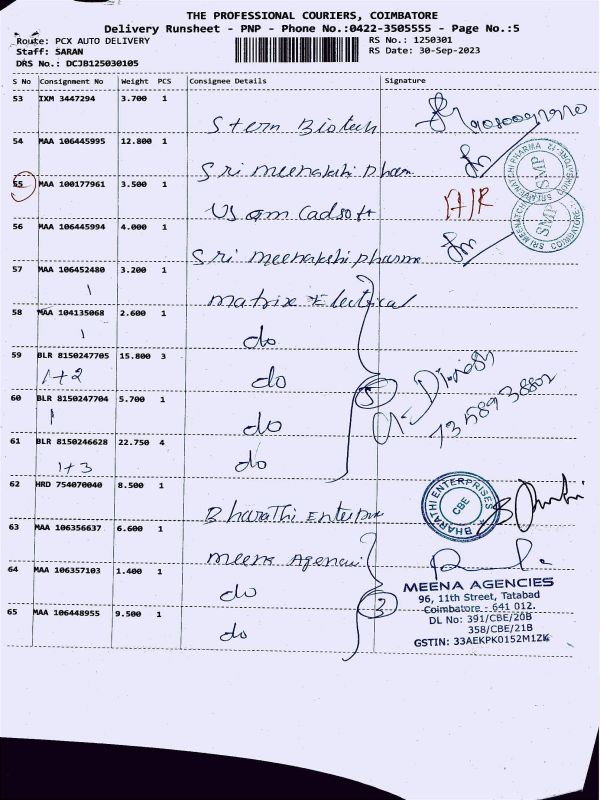 THE PROFESSIONAL COURIERS, COIMBATORE
Delivery Runsheet - PNP - Phone No.:0422-3505555 - Page No.:5
Route: PCX AUTO DELIVERY
RS No.: 1250301
Staff: SARAN
RS Date: 30-Sep-2023
DRS No.: DCJB125030105
S No Consignment No Weight PCS Consignee Details Signature
53 IXM 3447294 3.700 1
Stern Biotech
54 MAA 106445995 12.800 1
Sri meenakshi pham
55 MAA 100177961 3.500 1
US am Cadsoft
56 MAA 106445994 4.000 1
Sri meenakshi pharma
57 MAA 106452480 3.200 1
1 matrix Electrical
58 MAA 104135068 2.600 1
1 do
59 BLR 8150247705 15.800 3
1+2 do
60 BLR 8150247704 5.700 1
1 do
61 BLR 8150246628 22.750 4
1+3 do
5
Dinesh
62 HRD 754070040 8.500 1
Bharathi Enterprise
BHARATHI ENTERPRISES
CBE
63 MAA 106356637 6.600 1
meena Agencies
64 MAA 106357103 1.400 1
do
65 MAA 106448955 9.500 1
do
3
MEENA AGENCIES
96, 11th Street, Tatabad
Coimbatore - 641 012.
DL No: 391/CBE/20B
358/CBE/21B
GSTIN: 33AEKPK0152M1ZK
SRI MEENATCHI PHARMA
SMP
COIMBATORE-12
SRI MEENATCHI PHARMA
SMP
COIMBATORE